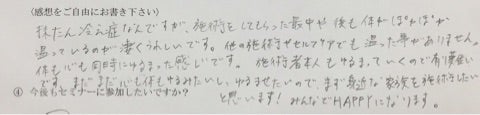 〈感想をご自由にお書き下さい〉
抹たん冷え症なんですが、施術をしてもらった最中や後も体がぽかぽか
温っているのが凄くうれしいです。他の施術やセルフケアでも温った事がありません。
体も心も同時にゆるまった感じです。施術者本人もゆるまっていくので有難い
す。まだまだ心も体もゆるみたいし、ゆるませたいので、まず身近な家族を施術したい
と思います！みんなでHAPPYになります。
④ 今後もセミナーに参加したいですか？